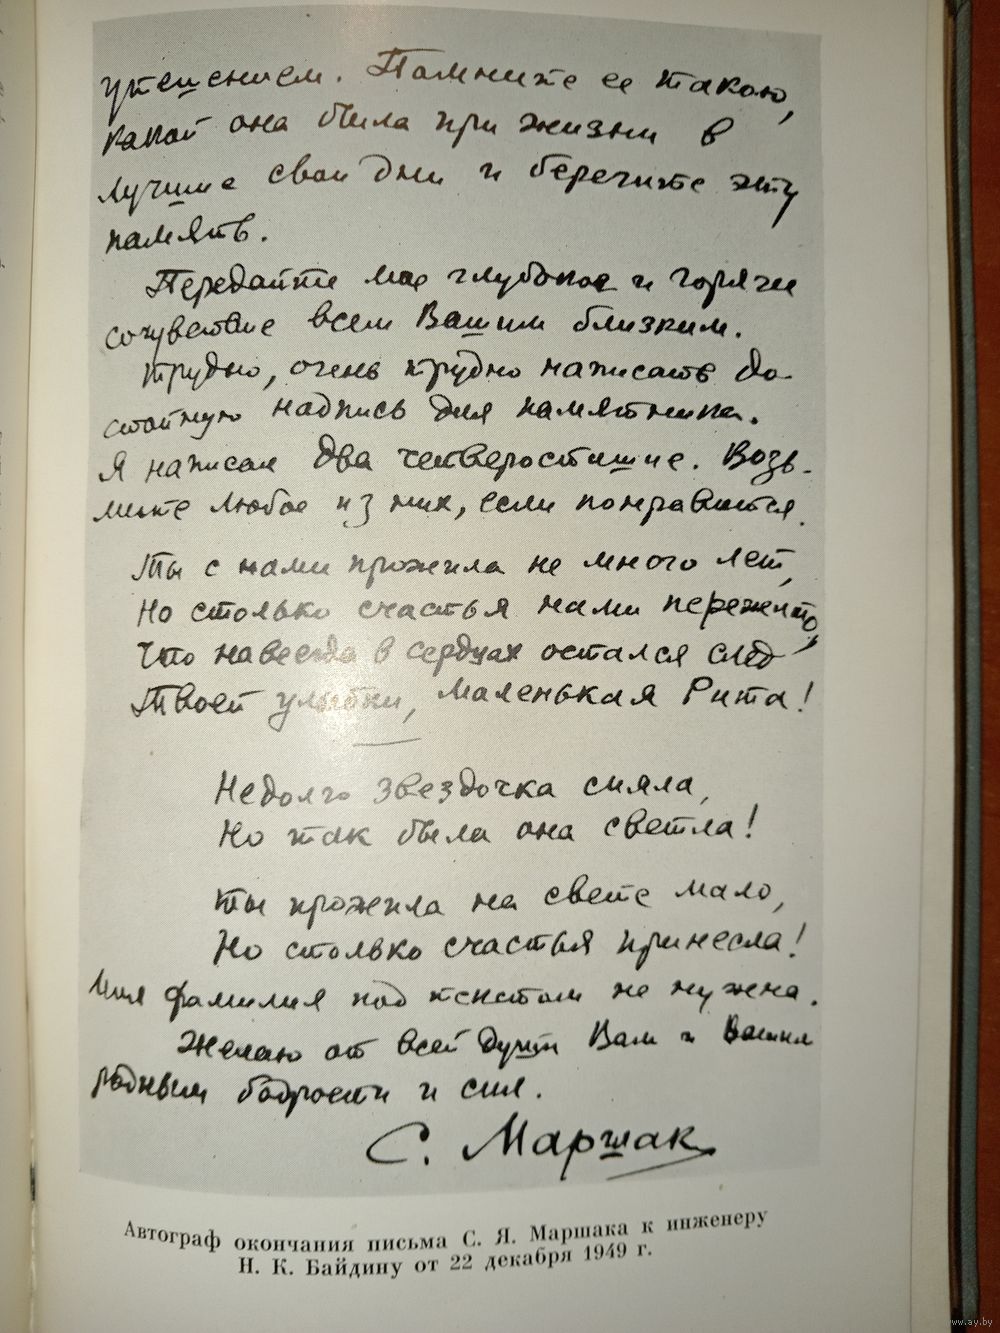 утешением. Помните ее такою,
какой она была при жизни в
лучшие свои дни и берегите эту
память.
Передайте мое глубокое и горячее
сочувствие всем Вашим близким.
Трудно, очень трудно написать до-
стойную надпись для памятника.
Я написал два четверостишие. Возь-
мите любое из них, если понравится.
Ты с нами прожила не много лет,
Но столько счастья нами пережито,
Что навсегда в сердцах остался след
Твоей улыбки, маленькая Рита!
Недолго звездочка сияла,
Но так была она светла!
Ты прожила на свете мало,
Но столько счастья принесла!
Моя фамилия под текстом не нужна.
Желаю от всей души Вам и Вашим
родным бодрости и сил.
С. Маршак
Автограф окончания письма С. Я. Маршака к инженеру
Н. К. Байдину от 22 декабря 1949 г.
www.ay.by